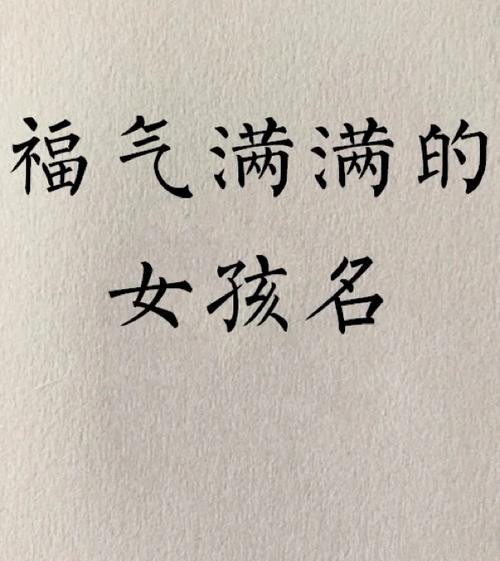 福气满满的
女孩名